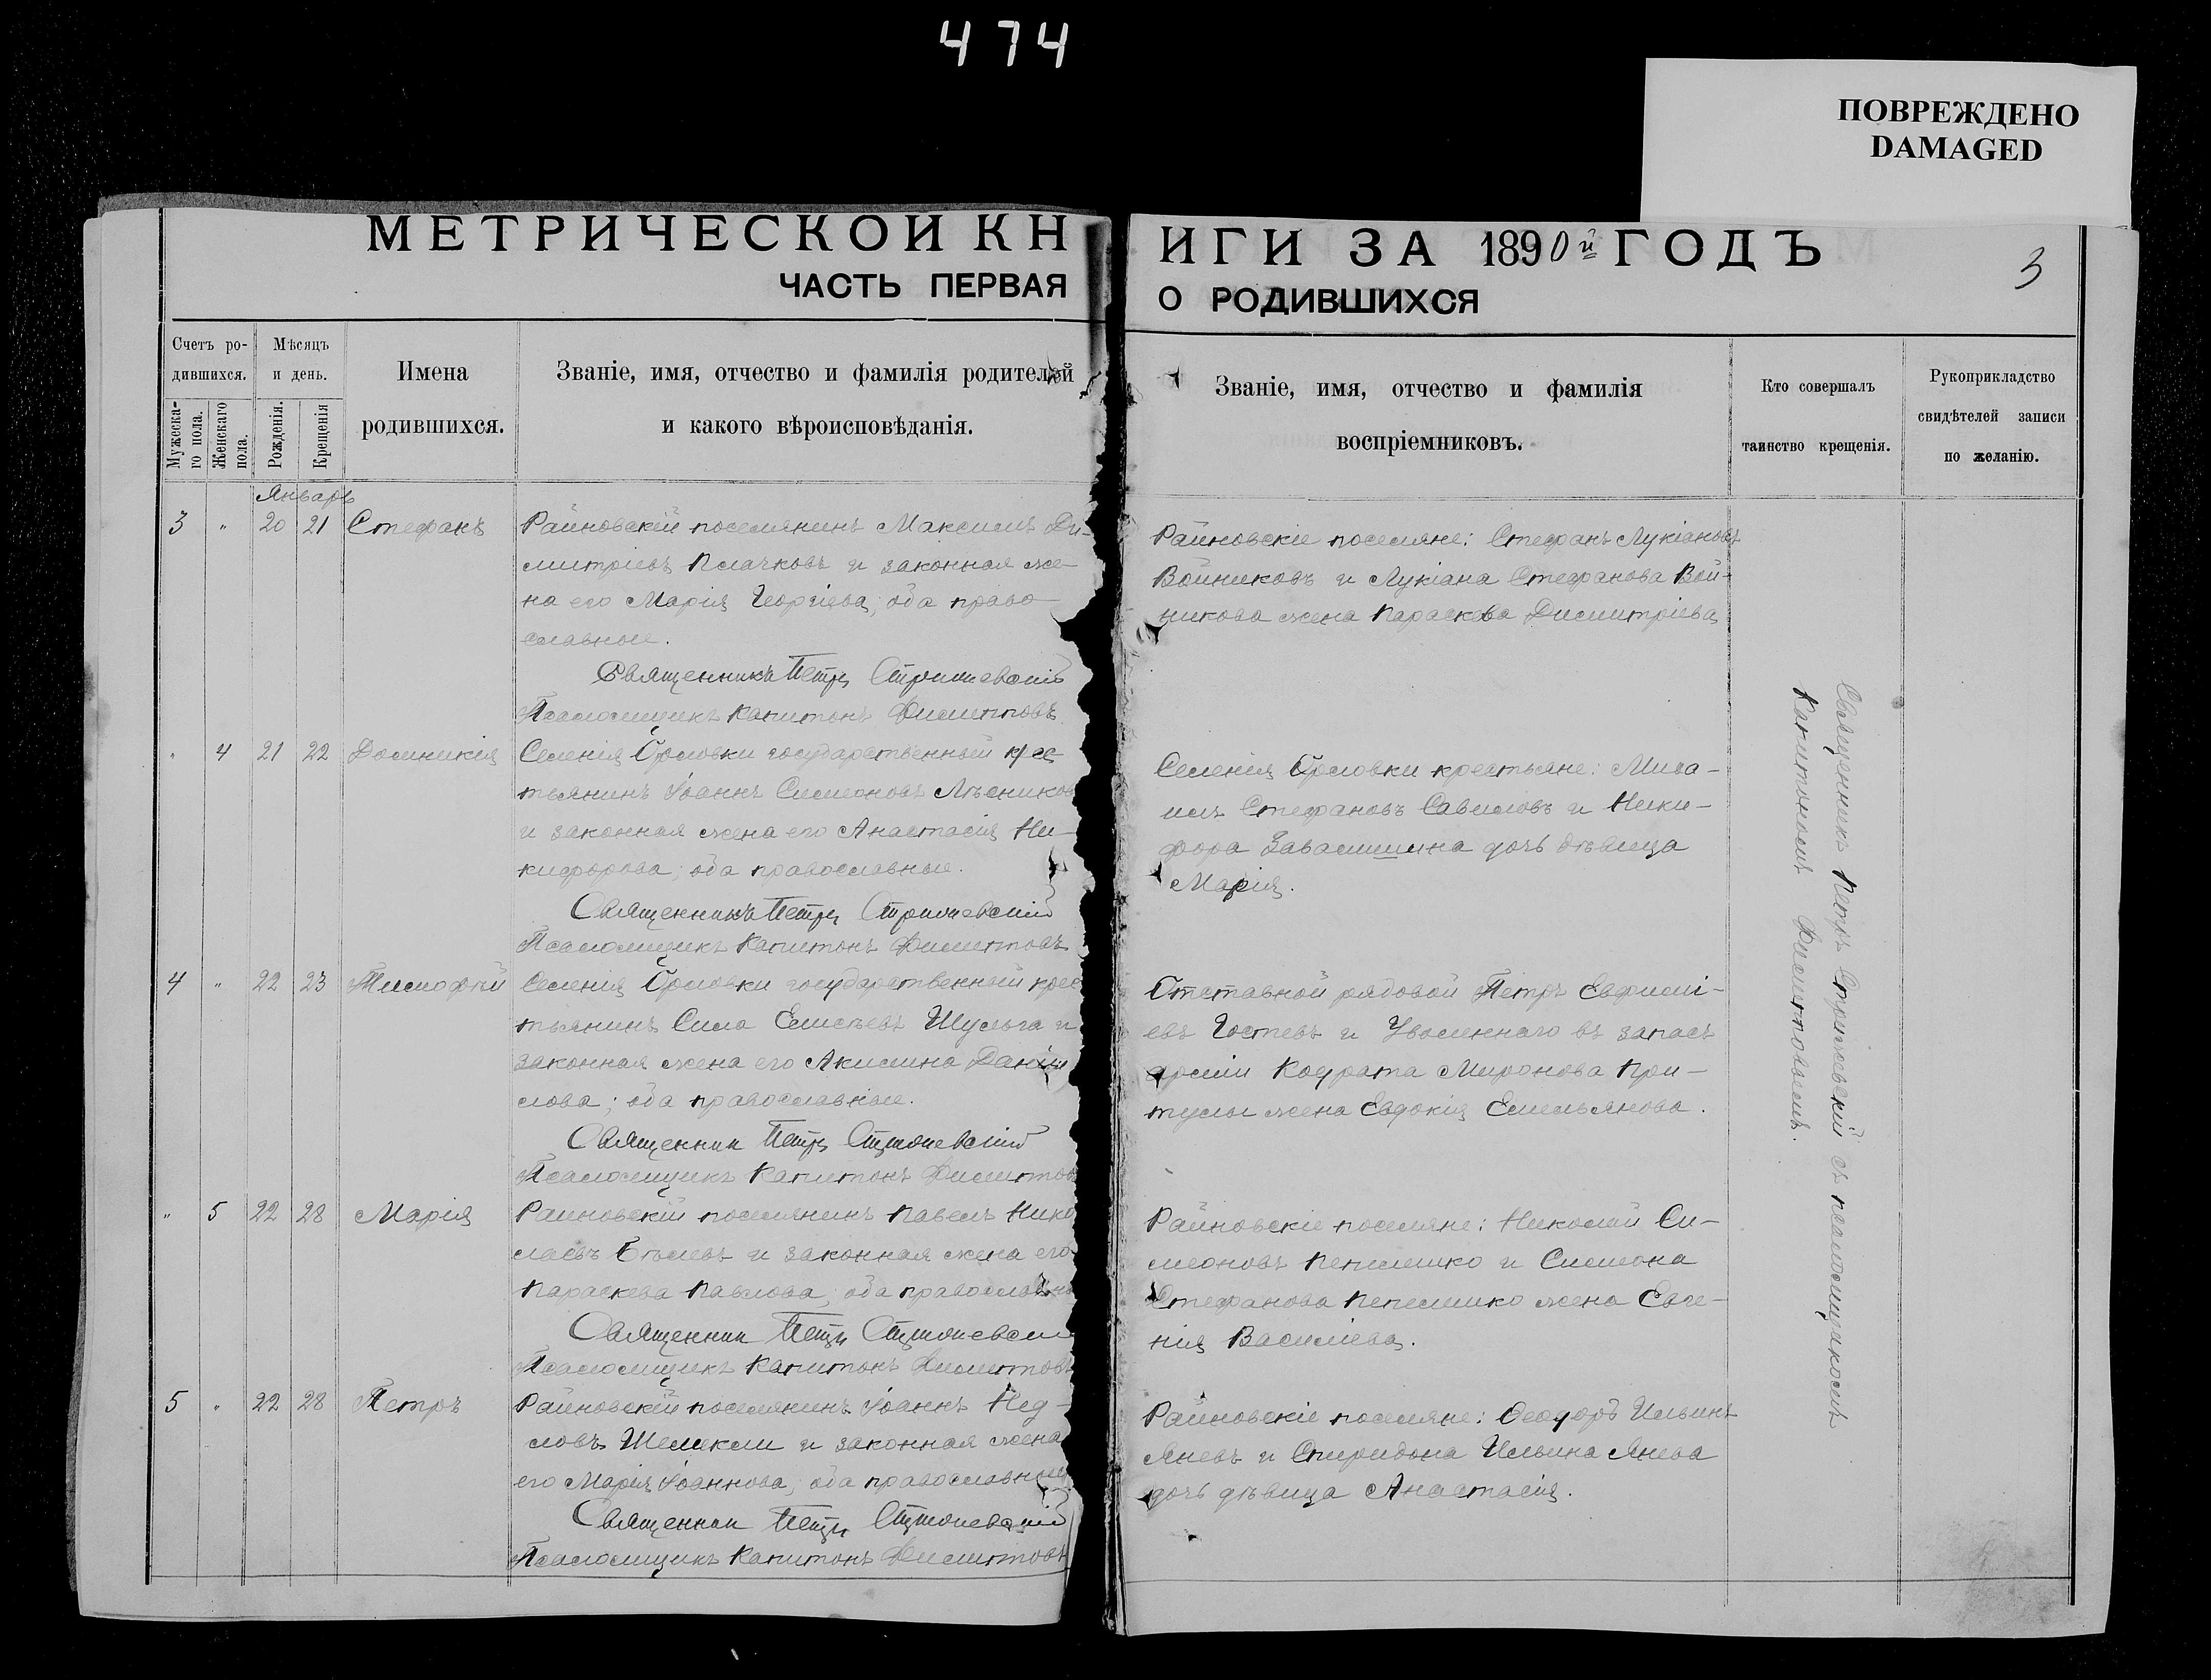 474
ПОВРЕЖДЕНО
DAMAGED
МЕТРИЧЕСКОЙ КН
ИГИ ЗА 1890й ГОДЪ
3
ЧАСТЬ ПЕРВАЯ
О РОДИВШИХСЯ
Счетъ ро-
дившихся.
Мужеска-
го пола.
Женскаго
пола.
Мѣсяцъ
и день.
Рожденія.
Крещенія
Имена
родившихся.
Званіе, имя, отчество и фамилія родителей
и какого вѣроисповѣданія.
Званіе, имя, отчество и фамилія
воспріемниковъ.
Кто совершалъ
таинство крещенія.
Рукоприкладство
свидѣтелей записи
по желанію.
Январь
3 " 20 21 Стефанъ
Райновскій поселянинъ Максимъ Ди-
митріевъ Плачковъ и законная же-
на его Марія Георгіева, оба право-
славные.
Священникъ Петръ
Псаломщикъ Капитонъ Филипповъ
Райновскіе поселяне: Стефанъ Лукіановъ
Войниковъ и Лукіана Стефанова Вой-
никова жена Параскева Димитріева
" 4 21 22 Домникія
Селенія Орловки государственный крес-
тьянинъ Іоаннъ Симеоновъ
и законная жена его Анастасія Ни-
кифорова, оба православные.
Священникъ Петръ
Псаломщикъ Капитонъ Филипповъ
Селенія Орловки крестьяне: Миха-
илъ Стефановъ Савиловъ и Ники-
фора дочь дѣвица
Марія.
4 " 22 23 Тимофей
Селенія Орловки государственный крес
тьянинъ Сила Елисѣевъ Шульга и
законная жена его Акилина Даніи
лова; оба православные.
Священник Петръ
Псаломщикъ Капитонъ Филиппов
Отставной рядовой Петръ Евфимі-
евъ Гостевъ и Уволеннаго въ запасъ
арміи Кодрата Миронова При-
тулы жена Евдокія Емельянова.
" 5 22 28 Марія
Райновскій поселянинъ Павелъ Нико
лаевъ и законная жена его
Параскева Павлова, оба православны
Священник Петръ
Псаломщикъ Капитонъ Филипповъ
Райновскіе поселяне: Николай Си-
меоновъ Пепелишко и Симеона
Стефанова Пепелишко жена Евге-
нія Василіева.
5 " 22 28 Петръ
Райновскій поселянинъ Іоаннъ Нед-
ловъ и законная жена
его Марія Іоаннова, оба православные
Священник Петръ
Псаломщикъ Капитонъ Филипповъ
Райновскіе поселяне: Ѳеодоръ Ильинъ
Яневъ и Спиридона Ильина Янева
дочь дѣвица Анастасія.
Священникъ Петръ съ псаломщикомъ
Капитономъ Филипповымъ.